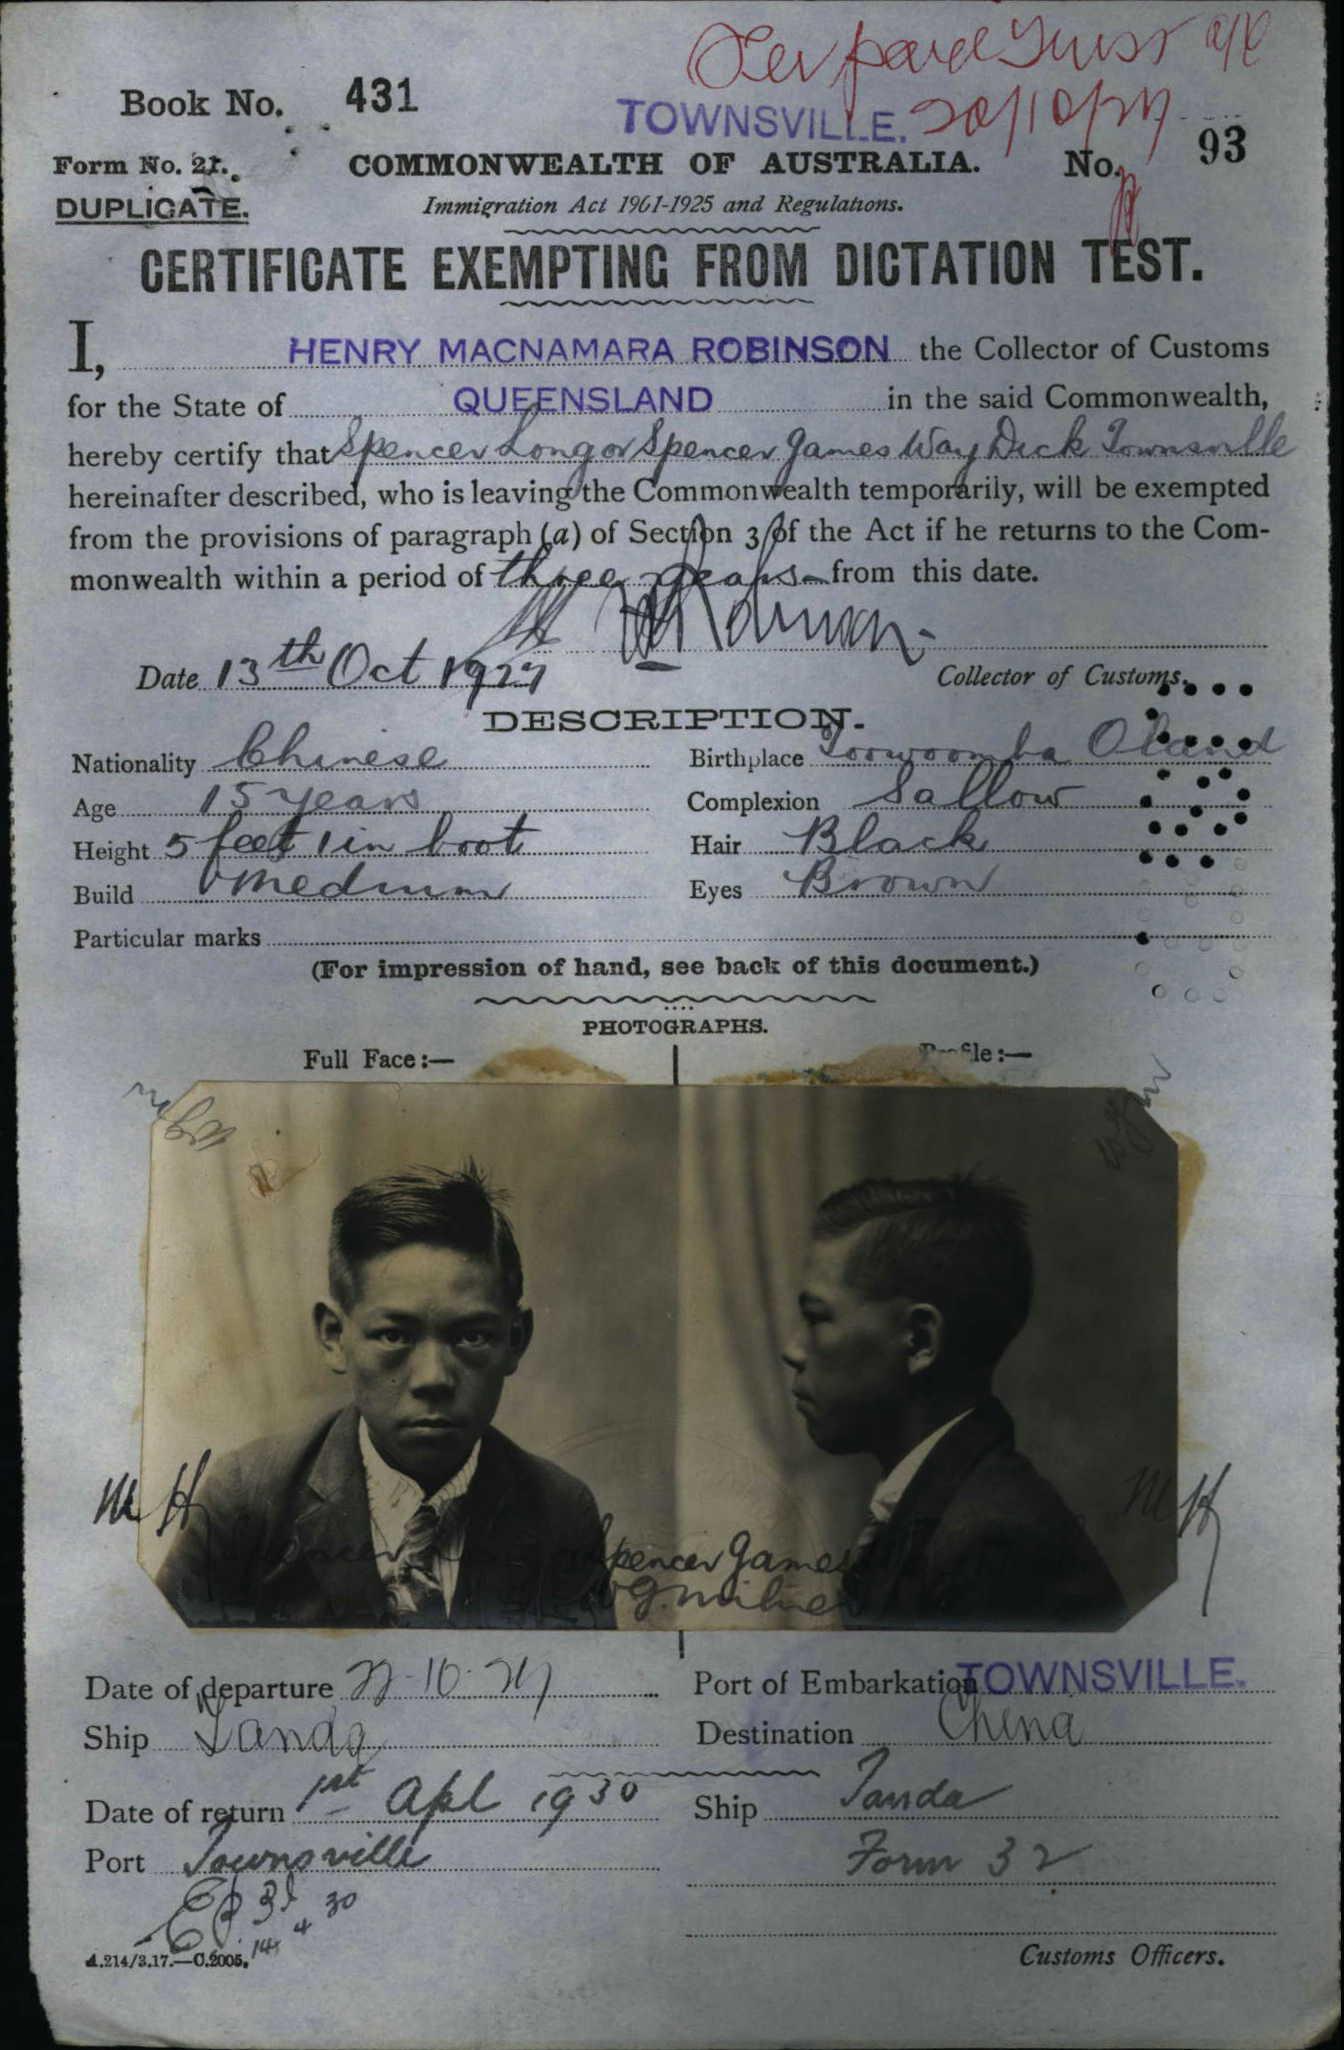 paid Trust a/c
Book No. 431
TOWNSVILLE. 20/10/27
Form No. 21. COMMONWEALTH OF AUSTRALIA. No. 93
DUPLICATE. Immigration Act 1901-1925 and Regulations.
CERTIFICATE EXEMPTING FROM DICTATION TEST.
I, HENRY MACNAMARA ROBINSON the Collector of Customs
for the State of QUEENSLAND in the said Commonwealth,
hereby certify that Spencer Long or Spencer James Way Dick Townsville
hereinafter described, who is leaving the Commonwealth temporarily, will be exempted
from the provisions of paragraph (a) of Section 3 of the Act if he returns to the Com-
monwealth within a period of three years from this date.
Date 13th Oct 1927 Collector of Customs.
DESCRIPTION.
Nationality Chinese Birthplace Toowoomba Qland
Age 15 years Complexion Sallow
Height 5 feet 1 in boot Hair Black
Build Medium Eyes Brown
Particular marks
(For impression of hand, see back of this document.)
PHOTOGRAPHS.
Full Face:— Profile:—
MH MH
Spencer James
W G. Milne
Date of departure 22-10-27 Port of Embarkation TOWNSVILLE.
Ship Tanda Destination China
Date of return 1st Apl 1930 Ship Tanda
Port Townsville Form 32
14 4 30
A.214/3.17.—C.2005. Customs Officers.